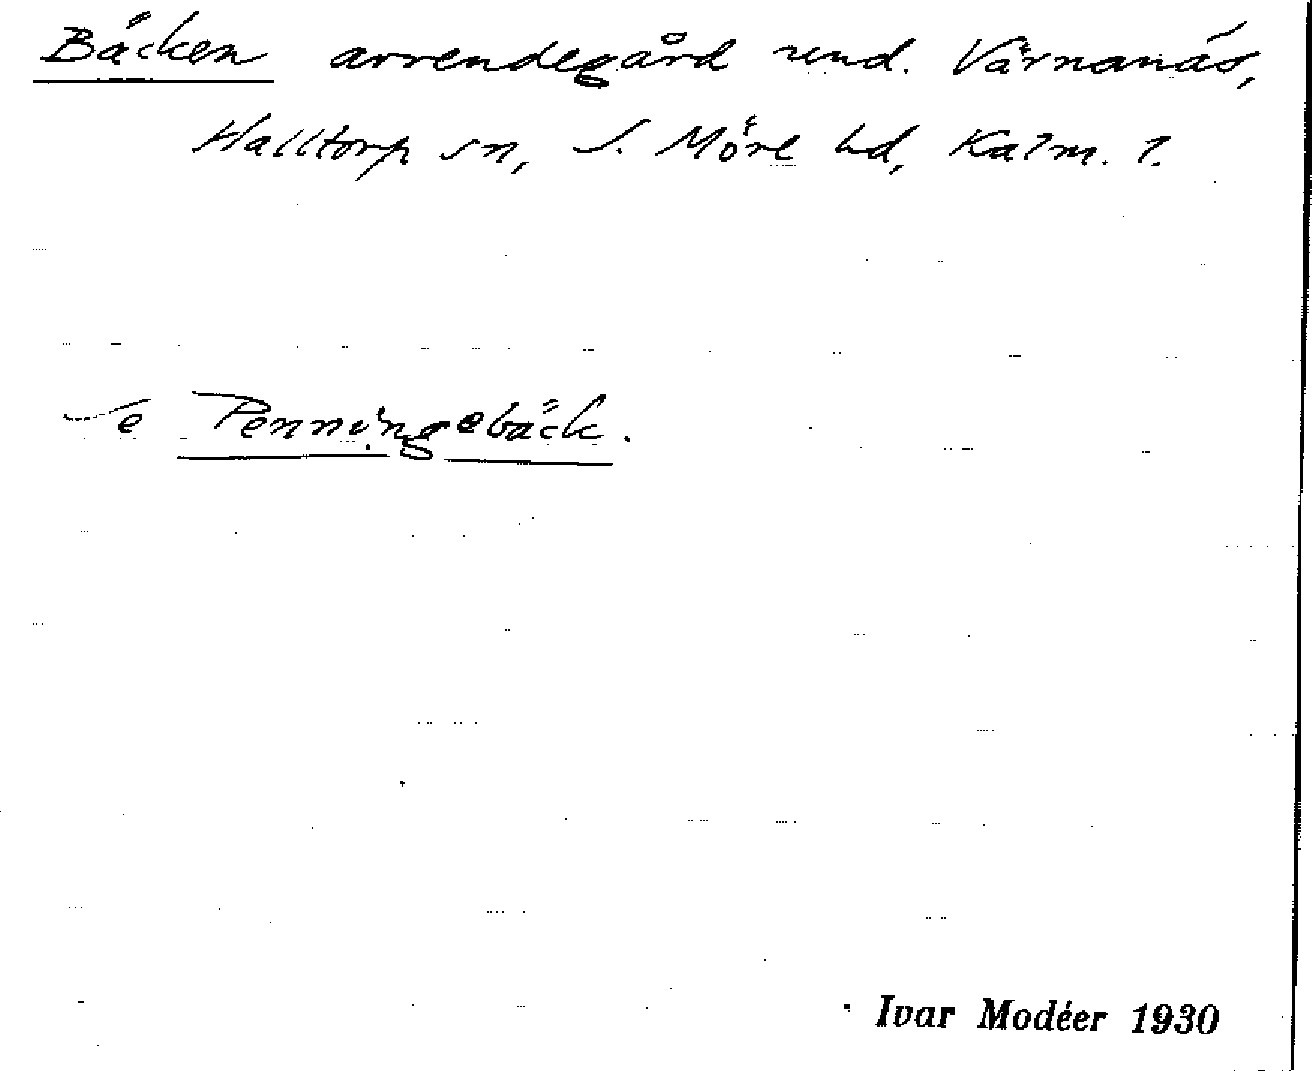 Bäcken arrendegård und. Värnanäs,
Halltorp sn, S. Möre hd, Kalm. l.
Se Penningebäck.
Ivar Modéer 1930